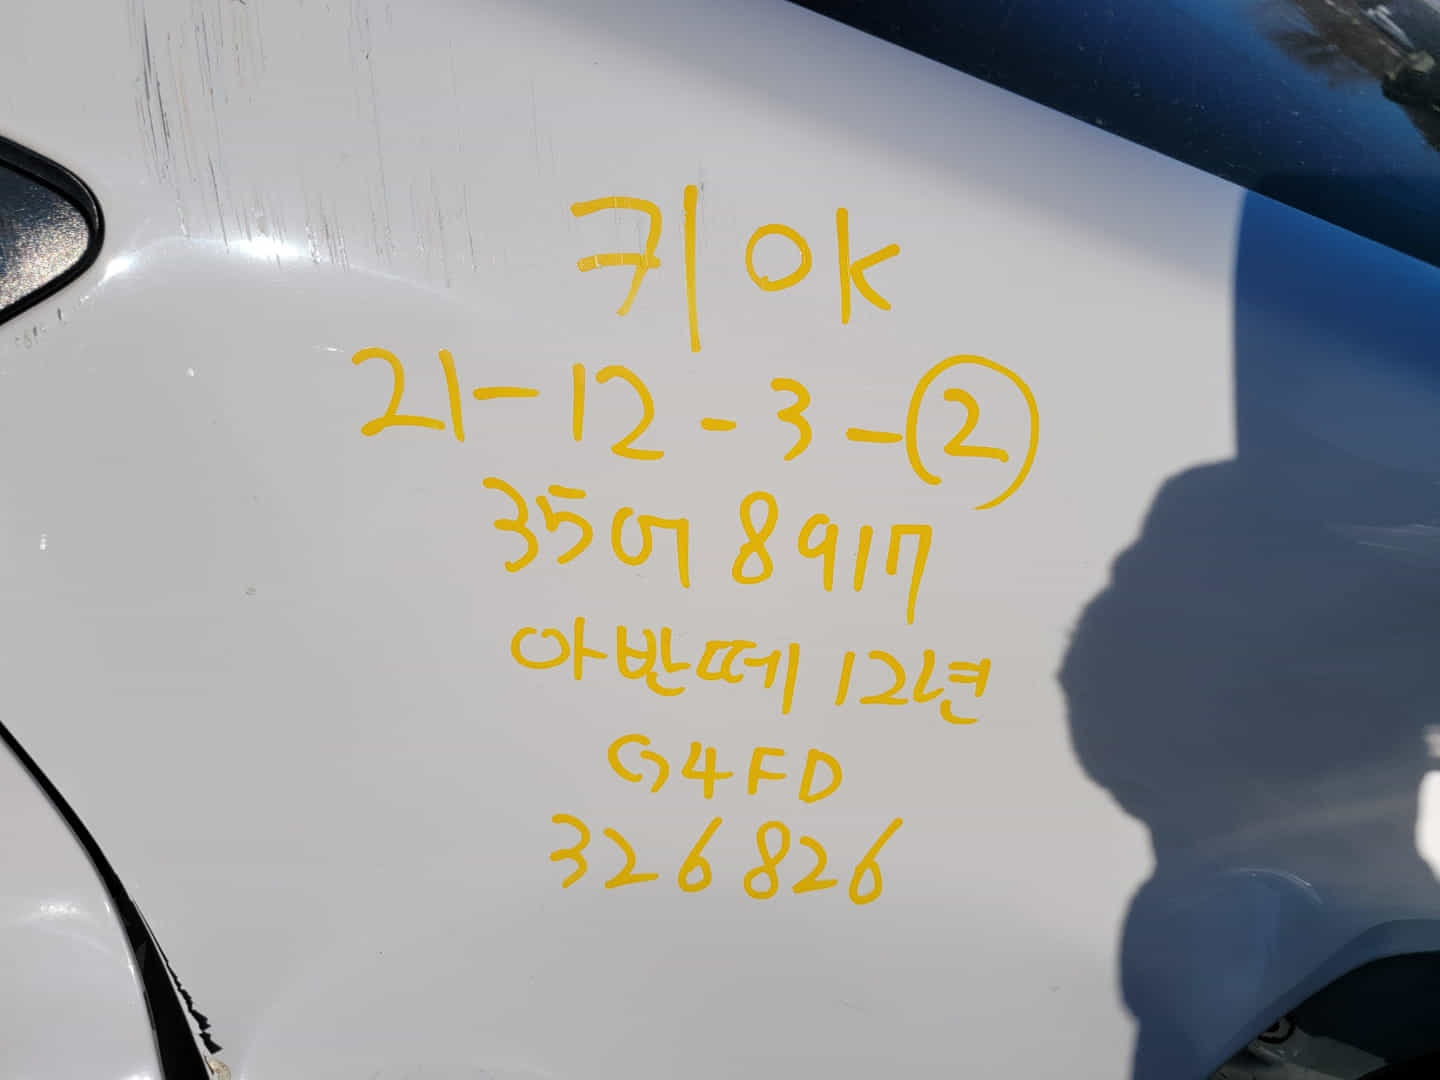 키 OK
21-12-3-②
35어 8917
아반떼 12년
G4FD
326826